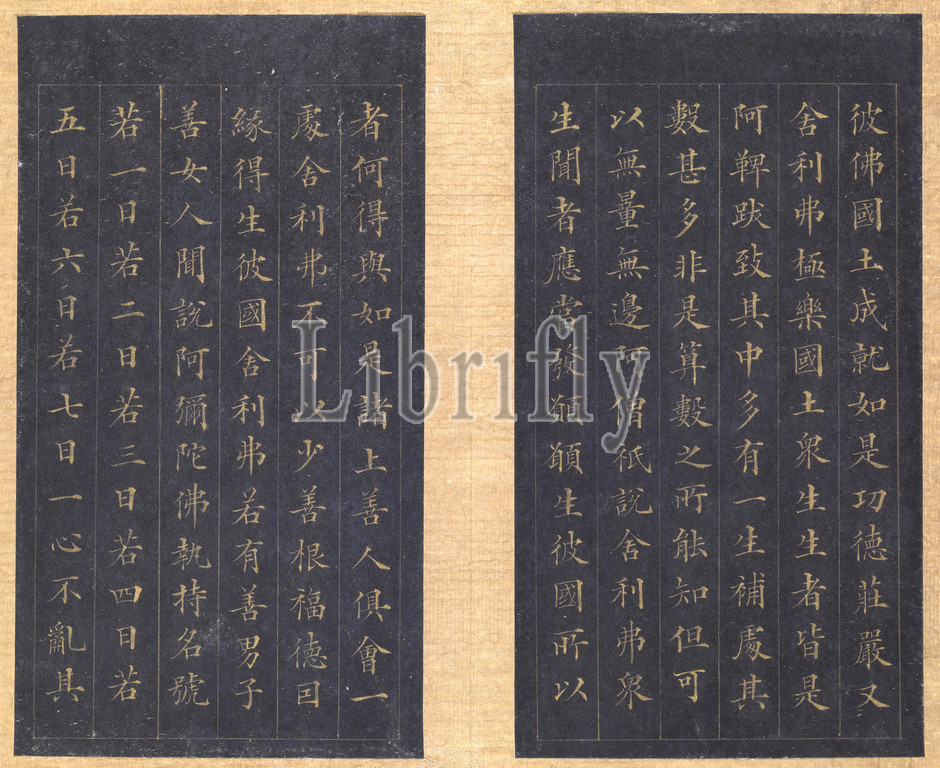 彼佛國土成就如是功德莊嚴又
舍利弗極樂國土衆生生者皆是
阿鞞跋致其中多有一生補處其
數甚多非是算數之所能知但可
以無量無邊阿僧祇說舍利弗衆
生聞者應當發願願生彼國所以
者何得與如是諸上善人俱會一
處舍利弗不可以少善根福德因
緣得生彼國舍利弗若有善男子
善女人聞說阿彌陀佛執持名號
若一日若二日若三日若四日若
五日若六日若七日一心不亂其
Librifly